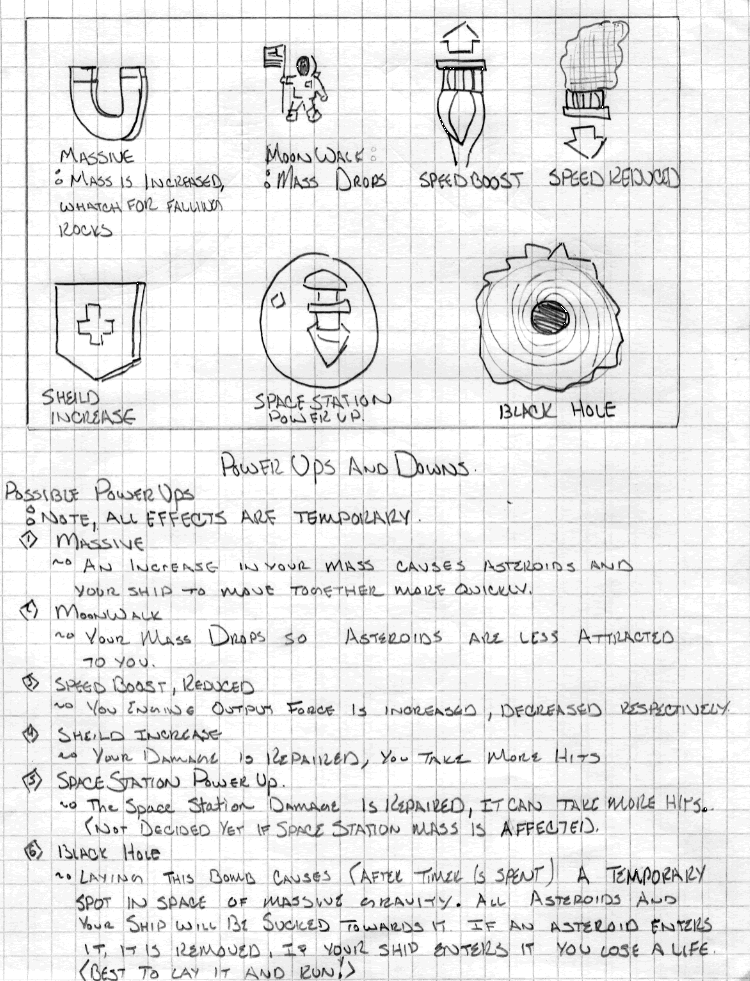 MASSIVE
: MASS IS INCREASED,
WHATCH FOR FALLING
ROCKS
MOONWALK:
: MASS DROPS
SPEED BOOST
SPEED REDUCED
SHEILD
INCREASE
SPACE STATION
POWER UP.
BLACK HOLE
POWER UPS AND DOWNS.
POSSIBLE POWER UPS
: NOTE, ALL EFFECTS ARE TEMPORARY.
1 MASSIVE
~ AN INCREASE IN YOUR MASS CAUSES ASTEROIDS AND
YOUR SHIP TO MOVE TOGETHER MORE QUICKLY.
2 MOONWALK
~ YOUR MASS DROPS SO ASTEROIDS ARE LESS ATTRACTED
TO YOU.
3 SPEED BOOST, REDUCED
~ YOU ENGINE OUTPUT FORCE IS INCREASED, DECREASED RESPECTIVELY.
4 SHEILD INCREASE
~ YOUR DAMAGE IS REPAIRED, YOU TAKE MORE HITS
5 SPACE STATION POWER UP.
~ The Space Station DAMAGE IS REPAIRED, IT CAN TAKE MORE HITS.
(NOT DECIDED YET IF SPACE STATION MASS IS AFFECTED).
6 BLACK HOLE
~ LAYING THIS BOMB CAUSES (AFTER TIMER IS SPENT) A TEMPORARY
SPOT IN SPACE OF MASSIVE GRAVITY. ALL ASTEROIDS AND
YOUR SHIP WILL BE SUCKED TOWARDS IT. IF AN ASTEROID ENTERS
IT, IT IS REMOVED, IF YOUR SHIP ENTERS IT YOU LOSE A LIFE.
(BEST TO LAY IT AND RUN!)